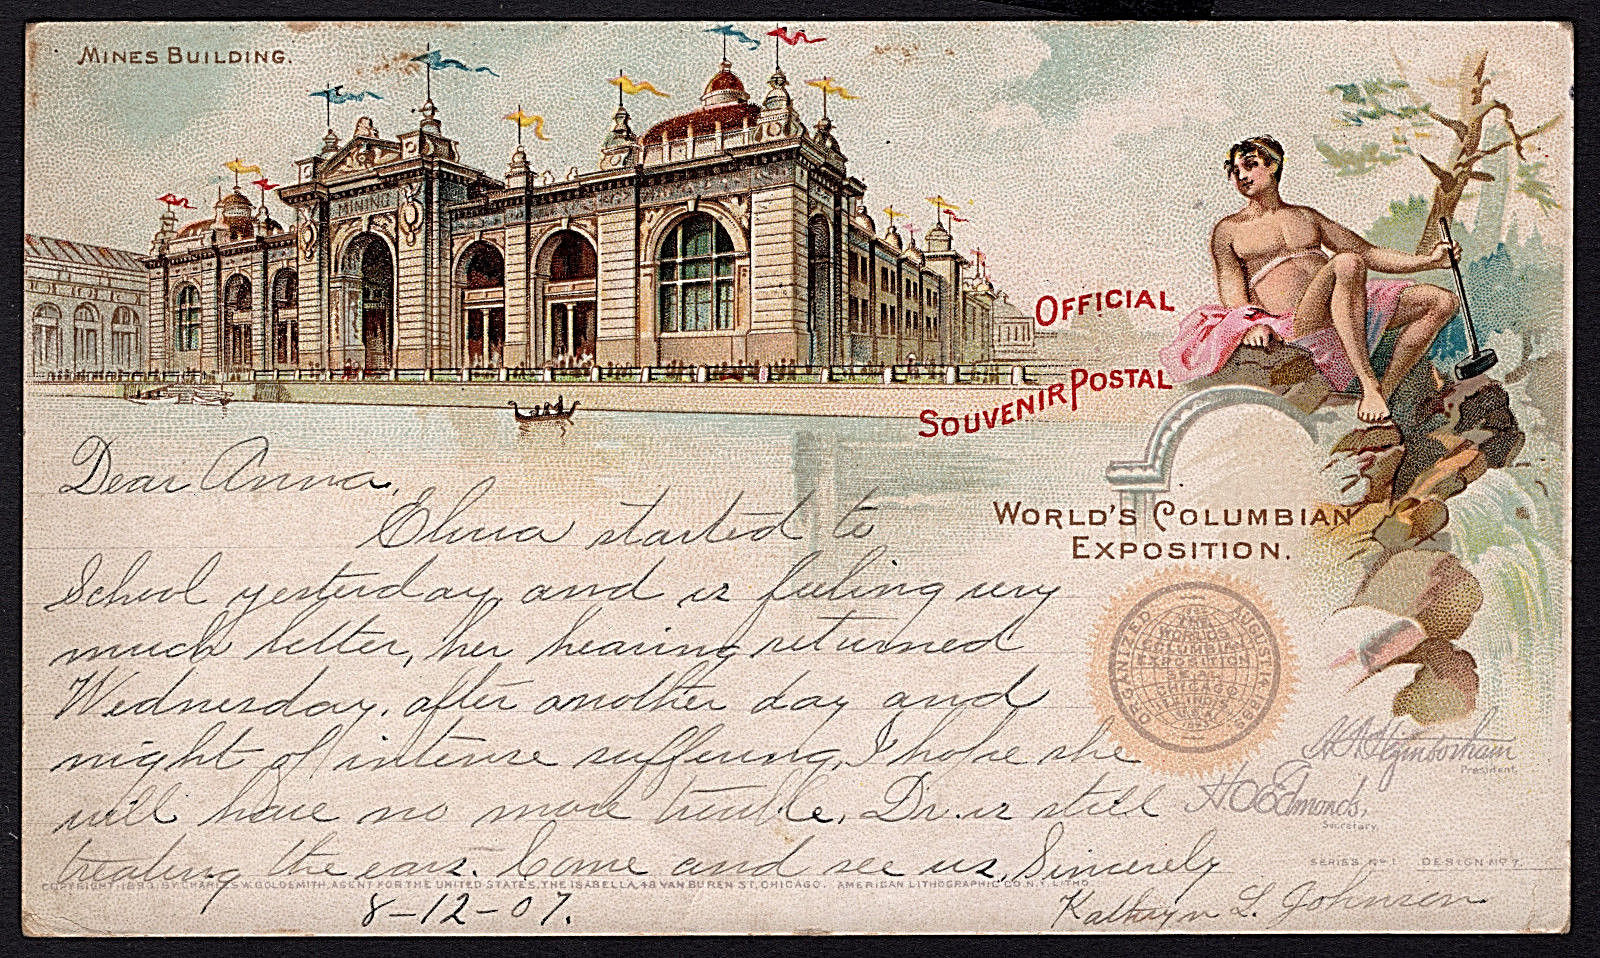 MINES BUILDING.
MINING
OFFICIAL
SOUVENIR POSTAL
WORLD'S COLUMBIAN
EXPOSITION.
ORGANIZED AUGUST
THE
WORLDS
COLUMBIAN
EXPOSITION
CHICAGO
ILLINOIS
Dear Anna,
Elma started to
School yesterday and is feeling very
much better, her hearing returned
Wednesday, after another day and
night of intense suffering, I hope she
will have no more trouble, Dr. is still
treating the ears. Come and see us, Sincerely
Kathryn L. Johnson
8-12-07.
H. N. Higinbotham
President,
H O Edmonds,
Secretary.
SERIES Nº 1. DESIGN Nº 7.
COPYRIGHT, 1893, BY CHARLES W. GOLDSMITH, AGENT FOR THE UNITED STATES, THE ISABELLA, 48 VAN BUREN ST, CHICAGO. AMERICAN LITHOGRAPHIC CO. N.Y. LITHO.